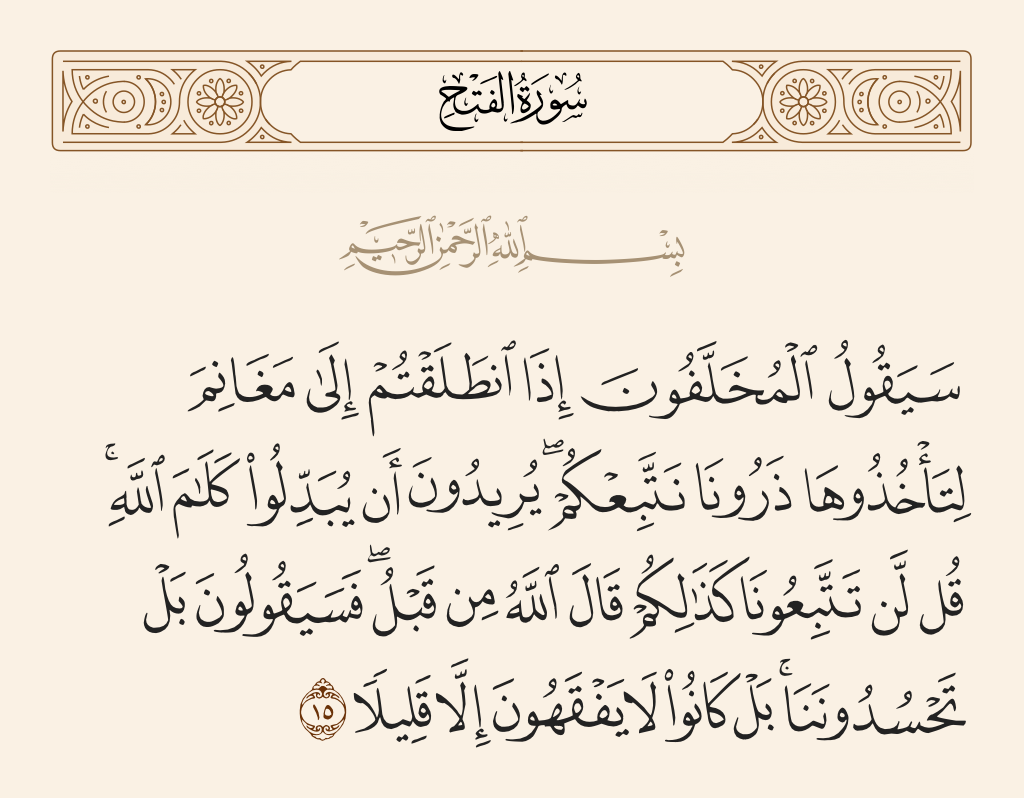 سُورَةُ الفَتۡحِ
بِسۡمِ ٱللَّهِ ٱلرَّحۡمَٰنِ ٱلرَّحِيمِ
سَيَقُولُ ٱلۡمُخَلَّفُونَ إِذَا ٱنطَلَقۡتُمۡ إِلَىٰ مَغَانِمَ
لِتَأۡخُذُوهَا ذَرُونَا نَتَّبِعۡكُمۡۖ يُرِيدُونَ أَن يُبَدِّلُواْ كَلَٰمَ ٱللَّهِۚ
قُل لَّن تَتَّبِعُونَا كَذَٰلِكُمۡ قَالَ ٱللَّهُ مِن قَبۡلُۖ فَسَيَقُولُونَ بَلۡ
تَحۡسُدُونَنَاۚ بَلۡ كَانُواْ لَا يَفۡقَهُونَ إِلَّا قَلِيلٗا ١٥